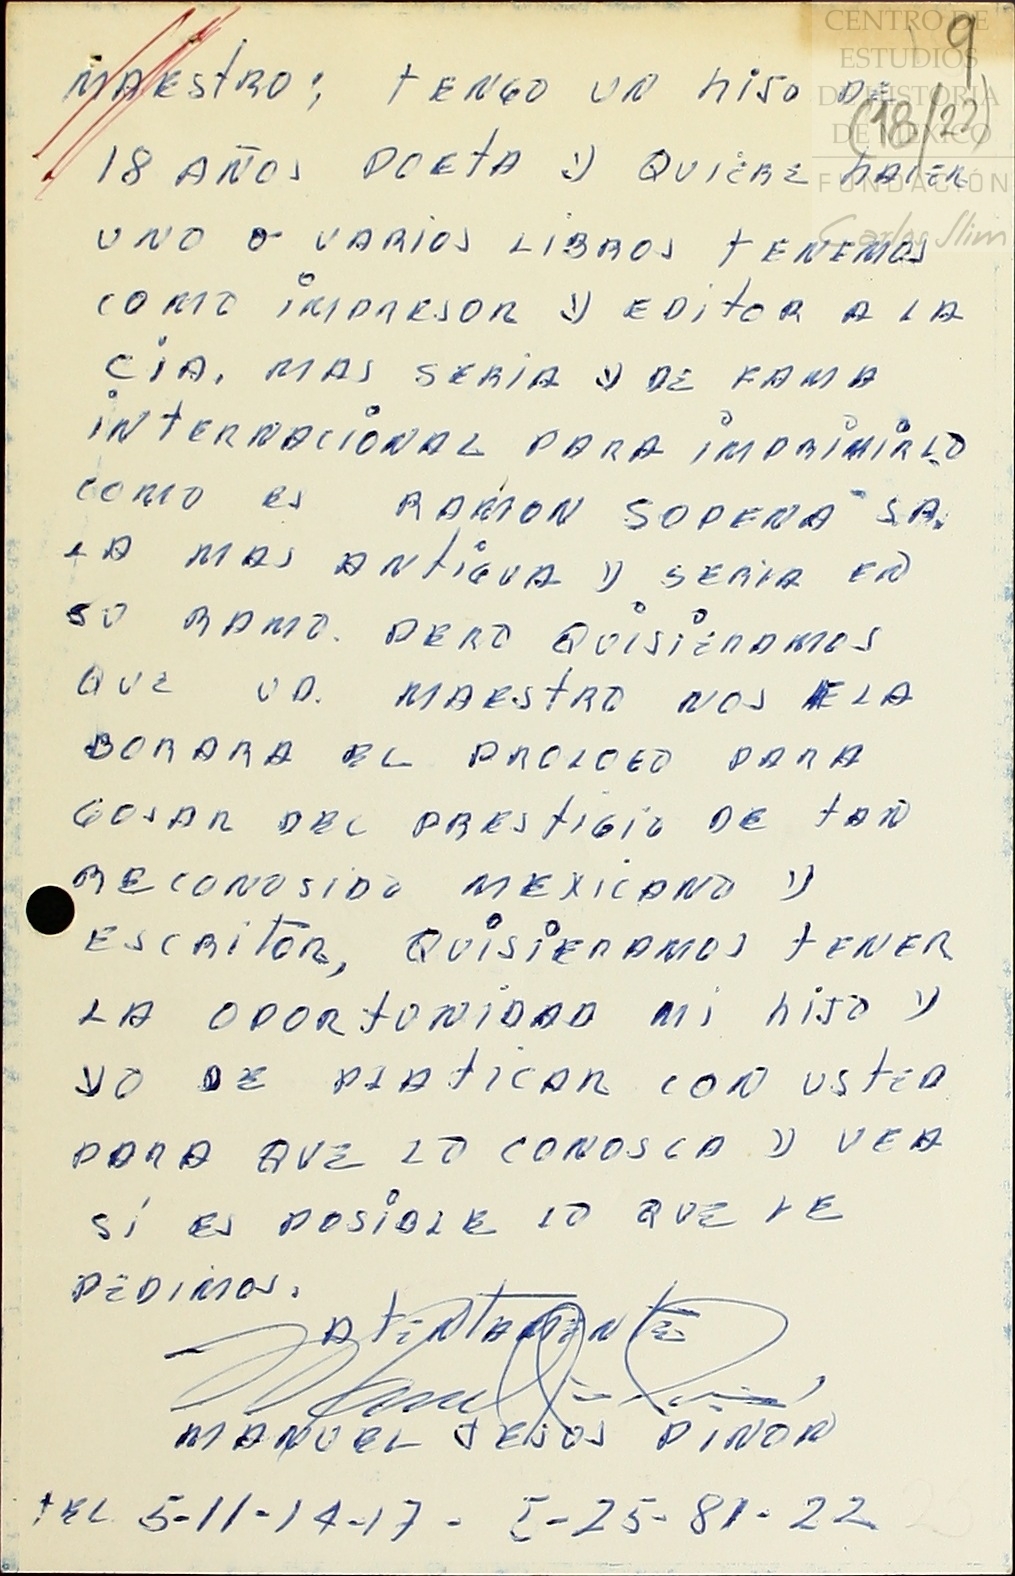 CENTRO DE
ESTUDIOS
DE HISTORIA
DE MEXICO
FUNDACIÓN
Carlos Slim
9
(18/22)
MAESTRO; TENGO UN HIJO DE
18 AÑOS POETA Y QUIERE HACER
UNO O VARIOS LIBROS TENEMOS
COMO IMPRESOR Y EDITOR A LA
CIA. MAS SERIA Y DE FAMA
INTERNACIONAL PARA IMPRIMIRLO
COMO ES RAMON SOPENA SA.
LA MAS ANTIGUA Y SERIA EN
SU RAMO. PERO QUISIERAMOS
QUE UD. MAESTRO NOS ELA
BORARA EL PROLOGO PARA
GOSAR DEL PRESTIGIO DE TAN
RECONOSIDO MEXICANO Y
ESCRITOR, QUISIERAMOS TENER
LA OPORTUNIDAD MI HIJO Y
YO DE PLATICAR CON USTED
PARA QUE LO CONOSCA Y VEA
SI ES POSIBLE LO QUE LE
PEDIMOS.
ATENTAMENTE
MANUEL JESUS PIÑON
TEL 5-11-14-17 - 5-25-81-22